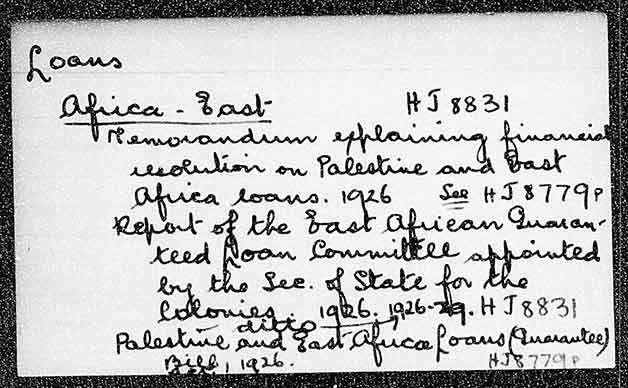 Loans
Africa - East HJ 8831
Memorandum explaining financial
resolution on Palestine and East
Africa loans. 1926 See HJ 8779P
Report of the East African Guaran-
teed Loan Committee appointed
by the Sec. of State for the
Colonies. 1926. 1926-29. HJ 8831
— ditto —
Palestine and East Africa Loans (Guarantee)
Bill, 1926. HJ 8779P